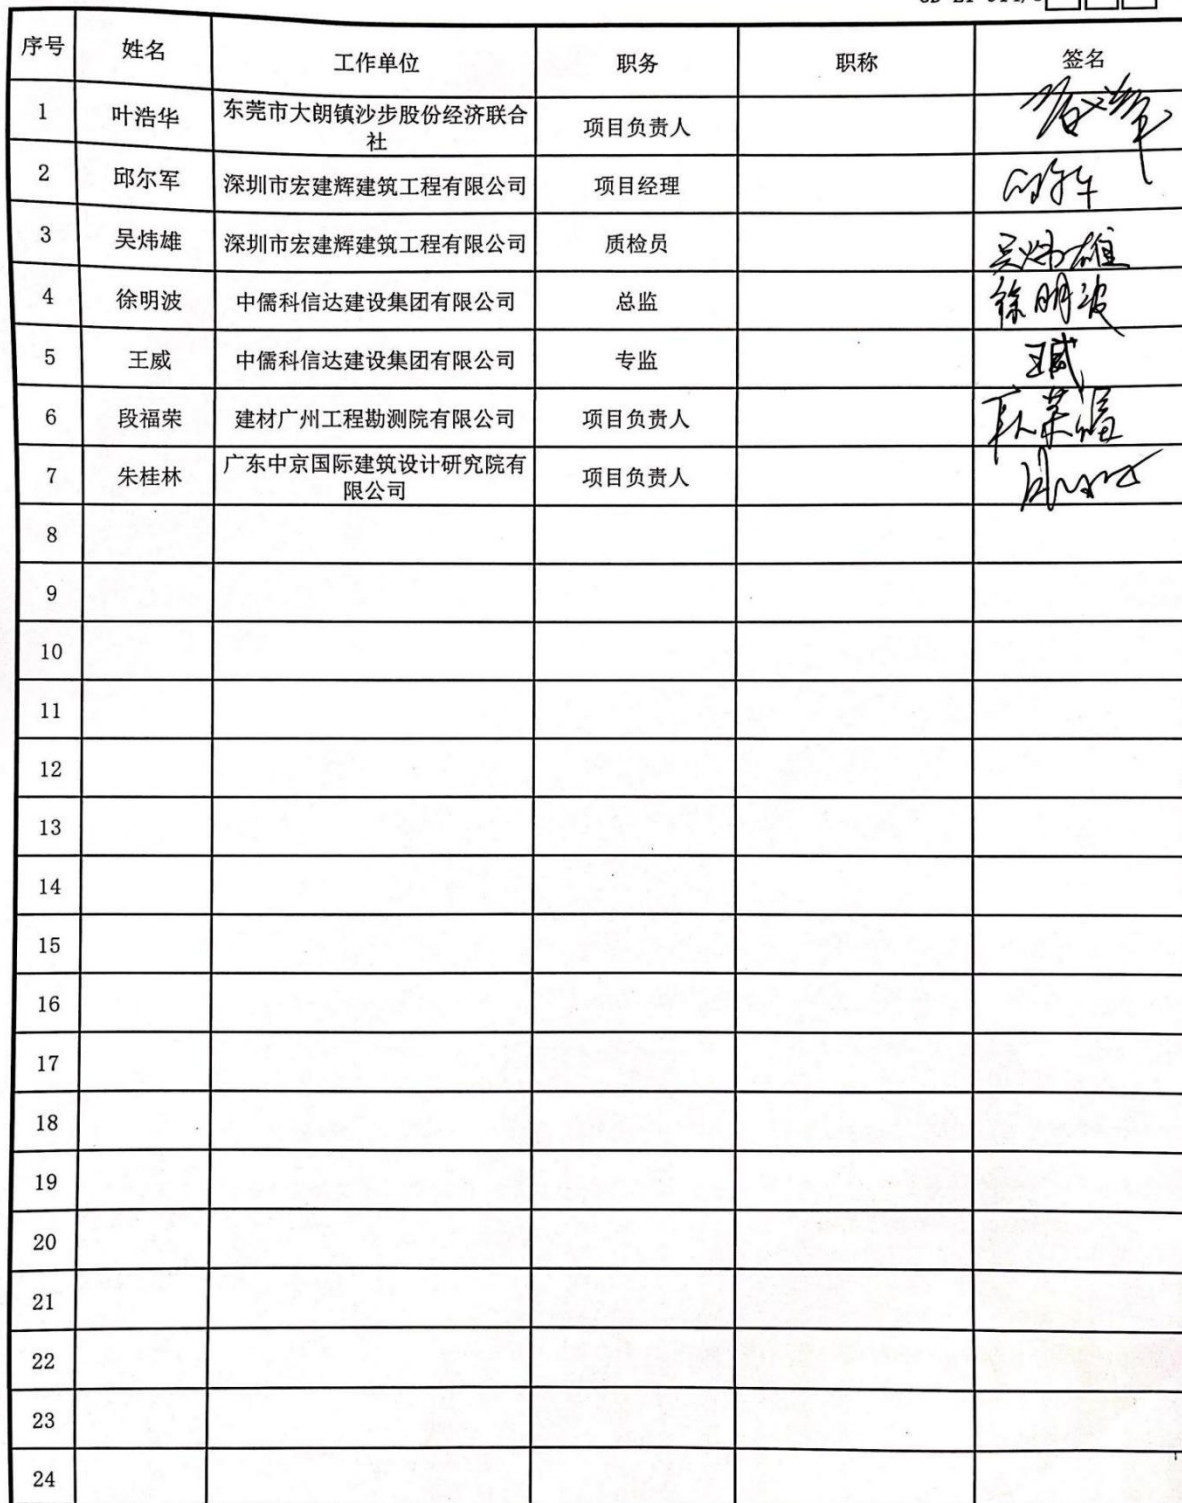 序号 姓名 工作单位 职务 职称 签名
1 叶浩华 东莞市大朗镇沙步股份经济联合社 项目负责人
2 邱尔军 深圳市宏建辉建筑工程有限公司 项目经理
3 吴炜雄 深圳市宏建辉建筑工程有限公司 质检员 吴炜雄
4 徐明波 中儒科信达建设集团有限公司 总监 徐明波
5 王威 中儒科信达建设集团有限公司 专监 王威
6 段福荣 建材广州工程勘测院有限公司 项目负责人
7 朱桂林 广东中京国际建筑设计研究院有限公司 项目负责人
8
9
10
11
12
13
14
15
16
17
18
19
20
21
22
23
24